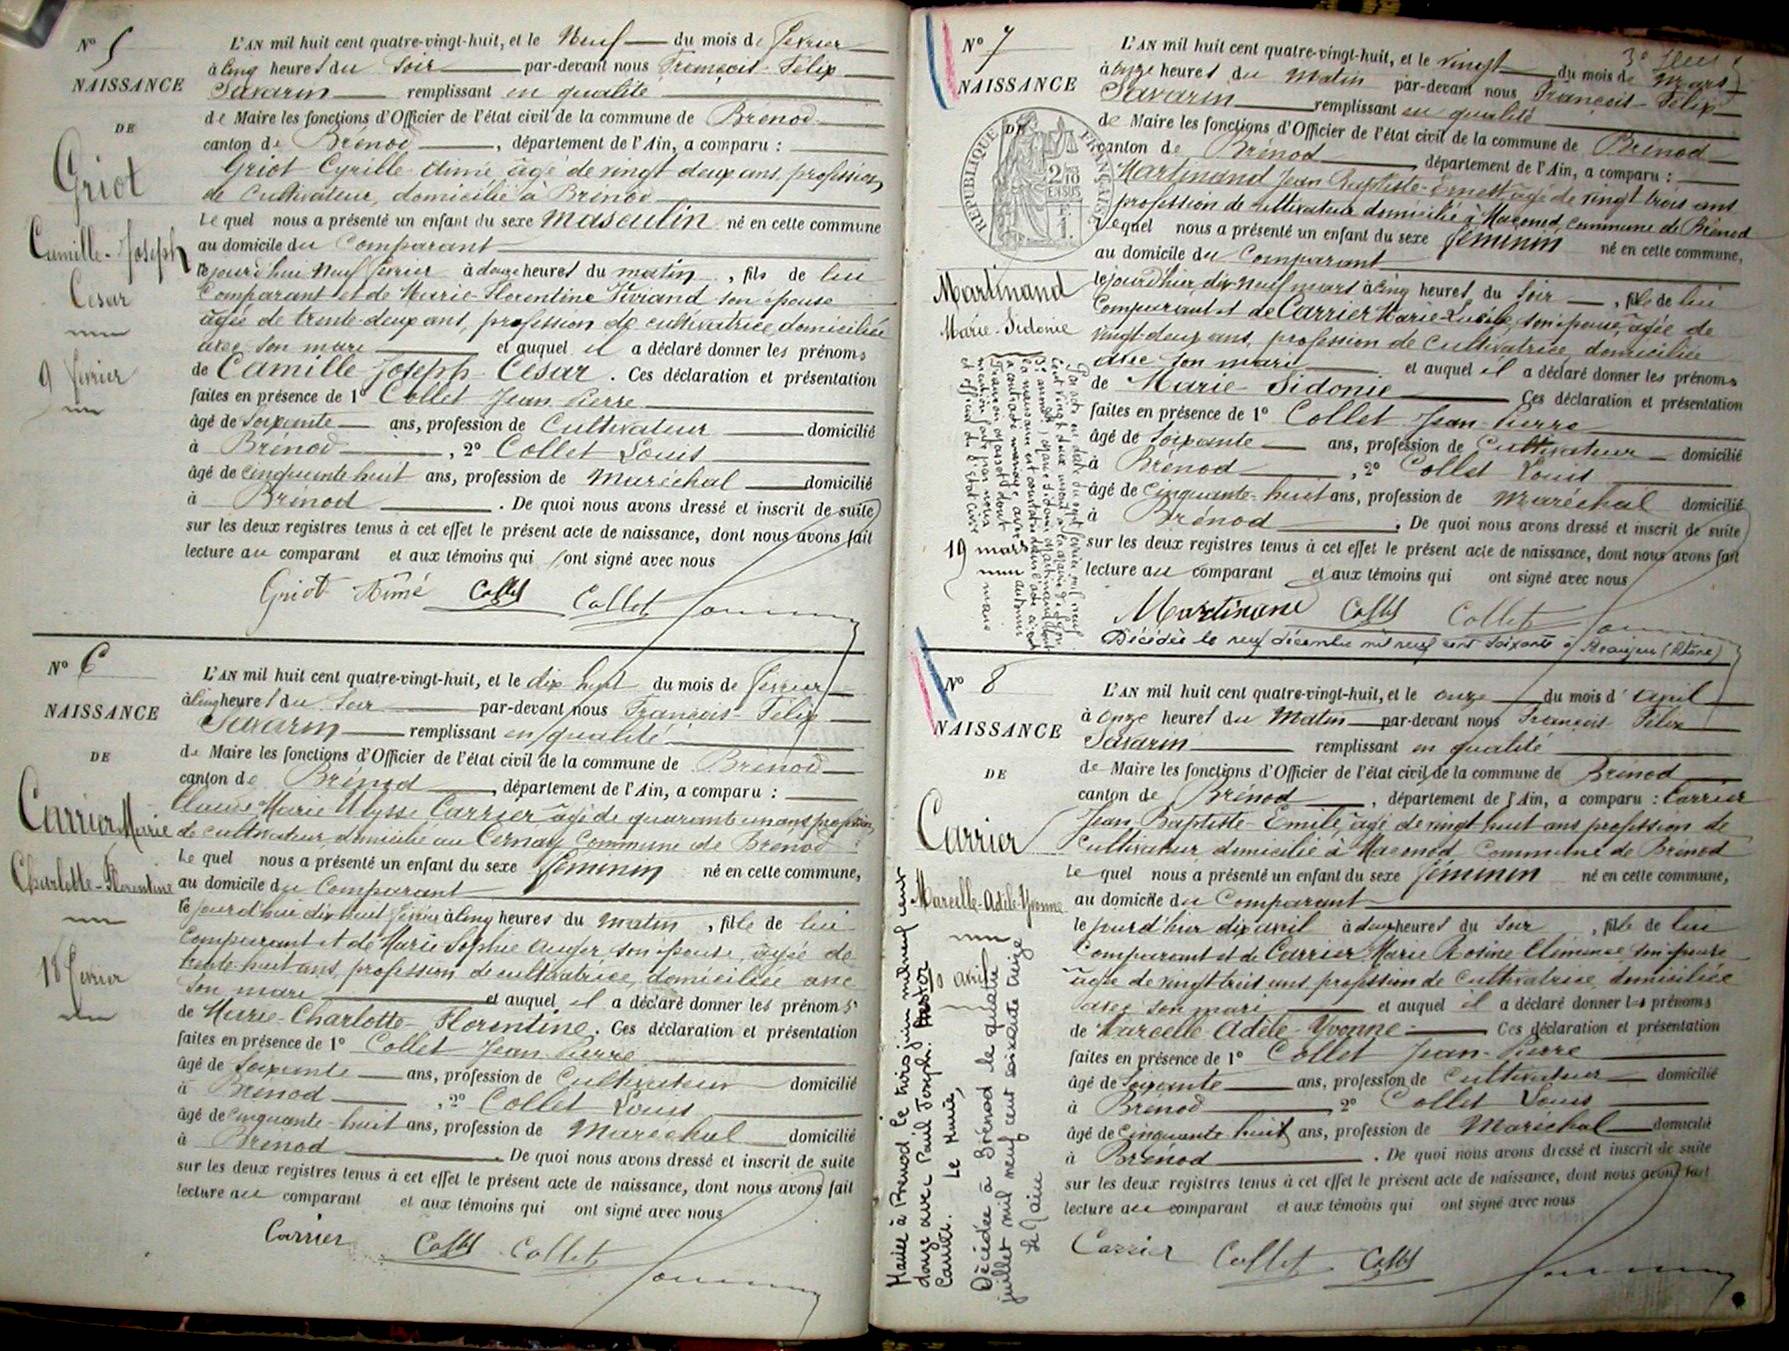 N° 5
NAISSANCE
DE
Griot
Camille-Joseph
Cesar
9 février
L'AN mil huit cent quatre-vingt-huit, et le Neuf du mois de février
à cinq heures du Soir par-devant nous François-Félix
Savarin remplissant en qualité
de Maire les fonctions d'Officier de l'état civil de la commune de Brénod
canton de Brénod, département de l'Ain, a comparu :
Griot Cyrille Aimé, âgé de vingt deux ans, profession
de Cultivateur, domicilié à Brénod
Le quel nous a présenté un enfant du sexe masculin né en cette commune
au domicile du Comparant
le jourd'hui Neuf février à douze heures du matin, fils de lui
Comparant et de Marie-Florentine Viviand son épouse
âgée de trente-deux ans, profession de cultivatrice, domiciliée
avec son mari et auquel il a déclaré donner les prénoms
de Camille Joseph-Cesar. Ces déclaration et présentation
faites en présence de 1° Collet Jean Pierre
âgé de Soixante ans, profession de Cultivateur domicilié
à Brénod, 2° Collet Louis
âgé de cinquante huit ans, profession de Maréchal domicilié
à Brénod. De quoi nous avons dressé et inscrit de suite
sur les deux registres tenus à cet effet le présent acte de naissance, dont nous avons fait
lecture au comparant et aux témoins qui ont signé avec nous
Griot Aimé Collet Collet
N° 6
NAISSANCE
DE
Carrier Marie
Charlotte-Florentine
18 février
L'AN mil huit cent quatre-vingt-huit, et le dix huit du mois de février
à cinq heures du Soir par-devant nous François-Félix
Savarin remplissant en qualité
de Maire les fonctions d'Officier de l'état civil de la commune de Brénod
canton de Brénod, département de l'Ain, a comparu :
Claude Marie Ulysse Carrier âgé de quarante un ans profession
de cultivateur, domicilié au Cernay Commune de Brénod
Le quel nous a présenté un enfant du sexe féminin né en cette commune,
au domicile du Comparant
le jourd'hui dix huit février à cinq heures du matin, fille de lui
Comparant et de Marie Sophie Auger son épouse, âgée de
trente huit ans, profession de cultivatrice, domiciliée avec
son mari et auquel il a déclaré donner les prénoms
de Marie-Charlotte-Florentine. Ces déclaration et présentation
faites en présence de 1° Collet Jean Pierre
âgé de Soixante ans, profession de Cultivateur domicilié
à Brénod, 2° Collet Louis
âgé de Cinquante-huit ans, profession de Maréchal domicilié
à Brénod. De quoi nous avons dressé et inscrit de suite
sur les deux registres tenus à cet effet le présent acte de naissance, dont nous avons fait
lecture au comparant et aux témoins qui ont signé avec nous
Carrier Collet Collet
N° 7
NAISSANCE
DE
RÉPUBLIQUE FRANÇAISE
Martinand
Marie-Sidonie
19 mars
L'AN mil huit cent quatre-vingt-huit, et le vingt du mois de Mars
à onze heures du Matin par-devant nous François-Félix
Savarin remplissant en qualité
de Maire les fonctions d'Officier de l'état civil de la commune de Brénod
canton de Brénod département de l'Ain, a comparu :
Martinand Jean Baptiste-Ernest âgé de vingt trois ans
profession de cultivateur domicilié à Macond, commune de Brénod
Lequel nous a présenté un enfant du sexe féminin né en cette commune,
au domicile du Comparant
le jourd'hier dix-neuf mars à cinq heures du Soir, fille de lui
Comparant et de Carrier Marie-Lucie, son épouse, âgée de
vingt-deux ans, profession de cultivatrice, domiciliée
avec son mari et auquel il a déclaré donner les prénoms
de Marie-Sidonie Ces déclaration et présentation
faites en présence de 1° Collet Jean-Pierre
âgé de Soixante ans, profession de Cultivateur domicilié
à Brénod, 2° Collet Louis
âgé de Cinquante-huit ans, profession de Maréchal domicilié
à Brénod. De quoi nous avons dressé et inscrit de suite
sur les deux registres tenus à cet effet le présent acte de naissance, dont nous avons fait
lecture au comparant et aux témoins qui ont signé avec nous
Martinand Collet Collet
Décédée le neuf décembre mil neuf cent soixante à Beaujeu (Rhône)
N° 8
NAISSANCE
DE
Carrier
Marcelle-Adèle-Yvonne
10 avril
Mariée à Brénod le trois juin mil neuf cent
douze avec Paul Joseph
Carrier. Le Maire,
Décédée à Brénod le quatre
juillet mil neuf cent soixante treize
Le Maire
L'AN mil huit cent quatre-vingt-huit, et le onze du mois d'avril
à onze heures du Matin par-devant nous François Félix
Savarin remplissant en qualité
de Maire les fonctions d'Officier de l'état civil de la commune de Brénod
canton de Brénod, département de l'Ain, a comparu : Carrier
Jean-Baptiste-Emile, âgé de vingt huit ans profession de
Cultivateur domicilié à Macond Commune de Brénod
Le quel nous a présenté un enfant du sexe féminin né en cette commune,
au domicile du Comparant
le jourd'hier dix avril à deux heures du Soir, fille de lui
Comparant et de Carrier Marie Rosine Clémence son épouse
âgée de vingt trois ans profession de Cultivatrice, domiciliée
avec son mari et auquel il a déclaré donner les prénoms
de Marcelle Adèle-Yvonne Ces déclaration et présentation
faites en présence de 1° Collet Jean-Pierre
âgé de Soixante ans, profession de Cultivateur domicilié
à Brénod 2° Collet Louis
âgé de Cinquante huit ans, profession de Maréchal domicilié
à Brénod. De quoi nous avons dressé et inscrit de suite
sur les deux registres tenus à cet effet le présent acte de naissance, dont nous avons fait
lecture au comparant et aux témoins qui ont signé avec nous
Carrier Collet Collet